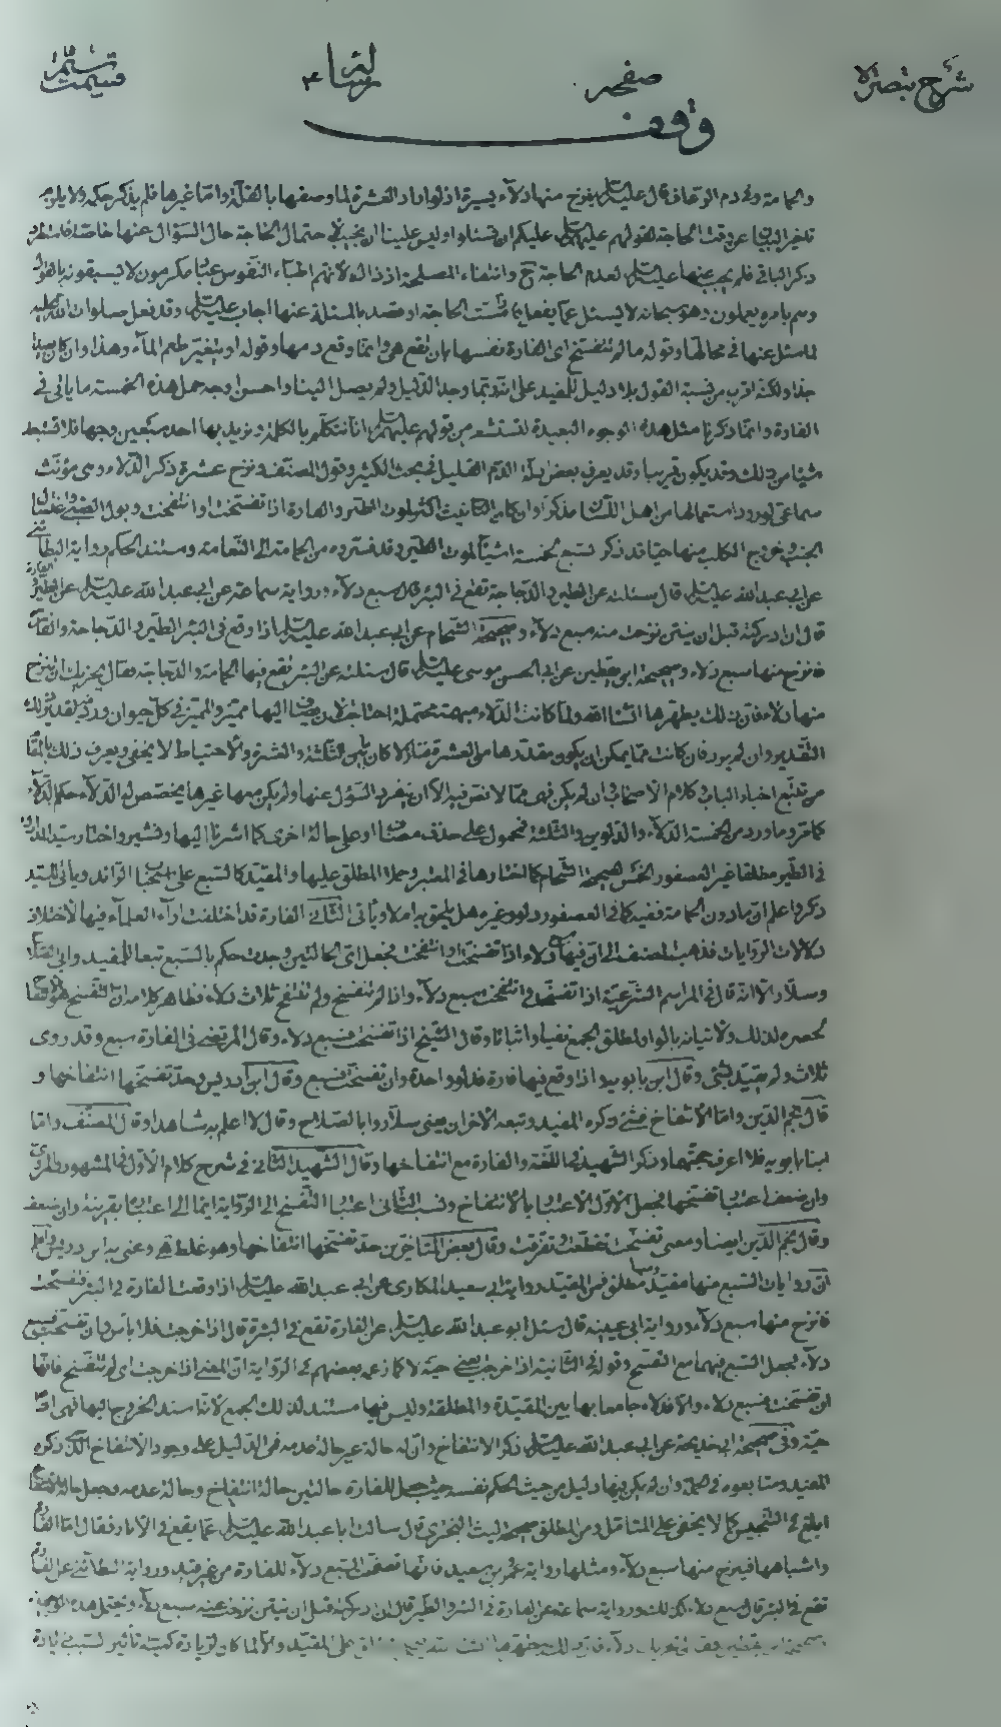 شرح تبصرة
صفحه
وقف
والحمامة وفي دم الرعاف قال عليه السلم ينزح منها دلاء يسيرة اذ لو اراد العشرة لما وصفها بالقلة واما غيرها فلم يذكر حكمه ولا يلزمه
تاخير البيان عن وقت الحاجة لقولهم عليهم السلم عليكم ان تسئلوا وليس علينا ان نجيب في احتمال الحاجة حال السؤال عنها خاصة
ذكر الباقي فلم يجب عنها عليه السلم لعدم الحاجة ح وانتفاء المصلحة اذ ذاك لانهم اطباء النفوس عباد مكرمون لا يسبقونه بالقول
وهم بامره يعملون وهو سبحانه لا يسئل عما يفعل الحاجة او قصد بالمسئلة عنها اجاب عليه السلم وقد فعل صلوات الله عليه
لما سئل عنها في محالها وقوله ما لم تتفسخ اي الفارة نفسها بان تقع هي وانما وقع دمها وقوله او يتغير طعم الماء وهذا وان كان بعيدا
جدا ولكنه اقرب من نسبة القول بلا دليل للمفيد على انه ربما وجد الدليل ولم يصل الينا واحسن اوجه حمل هذه الخمسة ما ياتي في
الفارة وانما ذكرنا مثل هذه الوجوه البعيدة لتستشعر من قولهم عليهم السلم انا نتكلم بالكلمة ونريد بها احد سبعين وجها فلا تستبعد
شيئا من ذلك وقد يكون قريبا وقد يعرف بعض الدم القليل في بحث الكثير وقول المصنف ونزح عشرة ذكر الدلاء وهي مؤنث
سماعي لورود استعمالها من اهل اللسان مذكرا وان كان التانيث اكثر لموت الطير والفارة اذا تفسخت او انتفخت وبول الصبي واغتسال
الجنب وخروج الكلب منها حيا قد ذكر لسبع خمسة اشياء لموت الطير وقد فسروه من الحمامة الى النعامة ومستند الحكم رواية البطائني
عن ابي عبد الله عليه السلم قال سئلته عن الطير والدجاجة تقع في البئر قال سبع دلاء ورواية سماعة عن ابي عبد الله عليه السلم عن الفارة
قال ان ادركته قبل ان ينتن نزحت منه سبع دلاء وصحيحة الشحام عن ابي عبد الله عليه السلم اذا وقع في البئر الطير والدجاجة والفارة
فانزح منها سبع دلاء وصحيحة ابن يقطين عن ابي الحسن موسى عليه السلم قال سئلته عن البئر تقع فيها الحمامة والدجاجة فقال يجزيك ان تنزح
منها دلاء فان ذلك يطهرها انشا الله ولما كانت الدلاء مبهمة محتملة احتاج الى اليها مميز والمميز في كل حيوان ورد فيه تقدير ذلك
التقدير وان لم يرد فان كانت مما يمكن ان يكون مقدرها من العشرة فنازلا كان بين الثلثة والعشرة والاحتياط لا يخفى ويعرف ذلك
من تتبع اخبار الباب وكلام الاصحاب وان لم يكن فهي مما لا نص فيه الا ان ينفرد السؤال عنها ولم يكن معها غيرها يخصص له الدلاء حكم الدلاء
كما مر وما ورد من الخمسة الدلاء والدلوين والثلثة فمحمول على حذف او على حالة اخرى كما اشرنا اليها ونشير واختار سيد المدارك
في الطير مطلقا غير العصفور الخمس لصحيحة الشحام كما اختارها في المعتبر وحمل المطلق عليها والمقيد كالسبع على استحباب الزائد وياتي للسيد
ذكر واعلم ان ما دون الحمامة ففيه كما في العصفور دلو وغيره هل يلحق به ام لا وياتي الثاني الفارة قد اختلفت اراء العلماء فيها لاختلاف
دلالات الروايات فذهب المصنف الى ان فيها سبع دلاء اذا تفسخت او انتفخت فجعل اي الحالتين وجدت حكم بالسبع تبعا للمفيد وابي الصلاح
وسلار الا انه قال في المراسم الشرعية اذا تفسخت وانتفخت سبع دلاء واذا لم تنفسخ ولم تنتفخ ثلاث دلاء فظاهر كلامه ان التفسخ هو الانتفاخ
لحصره لذلك ولاتيانه بالواو لمطلق الجمع نفيا واثباتا وقال الشيخ اذا تفسخت فسبع دلاء وقال المرتضى في الفارة سبع وقد روى
ثلاث ولم يقيد بشئ وقال ابن بابويه اذا وقع فيها فارة فدلو واحدة وان تفسخت فسبع وقال ابن ادريس وحد تفسخها انتفاخها و
قال نجم الدين واما الانتفاخ فشئ ذكره المفيد وتبعه الاخران يعني سلار وابا الصلاح وقال لا اعلم به شاهدا وقال المصنف واما
ابنا بابويه فلا اعرف حجتهما وذكر الشهيد في اللمعة والفارة مع انتفاخها وقال الشهيد الثاني في شرح كلام الاول في المشهور والمروي
وان ضعف اعتبار تفسخها فجعل الاول الاعتبار بالانتفاخ ونسب الثاني اعتبار التفسخ الى الرواية ايماء الى اعتبارها بقرينة وان ضعف
وقال نجم الدين ايضا ومعنى تفسخت تقطعت وتفرقت وقال بعض المتاخرين حد تفسخها انتفاخها وهو غلط وعنى به ابن ادريس واعلم
ان روايات السبع منها مقيد ومنها مطلق فمن المقيد رواية ابي سعيد المكاري عن ابي عبد الله عليه السلم اذا وقعت الفارة في البئر فتفسخت
فانزح منها سبع دلاء ورواية ابي عيينه قال سئل ابو عبد الله عليه السلم عن الفارة تقع في البئر قال اذا خرجت فلا باس وان تفسخت فسبع
دلاء فجعل السبع فيهما مع التفسخ وقوله في الثانية اذا خرجت يعني حية لا كما زعمه بعضهم في الرواية ان المعنى اذا خرجت اي لم تتفسخ فانها
ان تفسخت فسبع دلاء والا فدلاء جامعا بها بين المقيدة والمطلقة وليس فيها مستند لذلك الجمع لانه اسند الخروج اليها فهي اذا
حية وفي صحيحة ابي خديجة عن ابي عبد الله عليه السلم ذكر الانتفاخ وان له حالة غير حالة عدمه فهي الدليل على وجود الانتفاخ الذي ذكره
المفيد ومتابعوه في وان لم يكن فيها دليل من حيث الحكم نفسه حيث جعل للفارة حالتين حالة انتفاخ وحالة عدمه وجعل حالة الانتفاخ
ابلغ في التنجيس كما لا يخفى على المتامل ومن المطلق صحيحة ليث البختري قال سالت ابا عبد الله عليه السلم عما يقع في الابار فقال اما الفارة
واشباهها فينزح منها سبع دلاء ومثلها رواية عمرو بن سعيد فانها تضمنت السبع دلاء للفارة من غير قيد ورواية البطائني عن الفارة
تقع في البئر قال سبع دلاء كذلك ورواية سماعة عن الفارة في البئر والطير قال ان ادركته قبل ان ينتن نزحت عنه سبع دلاء ويحتمل هذه